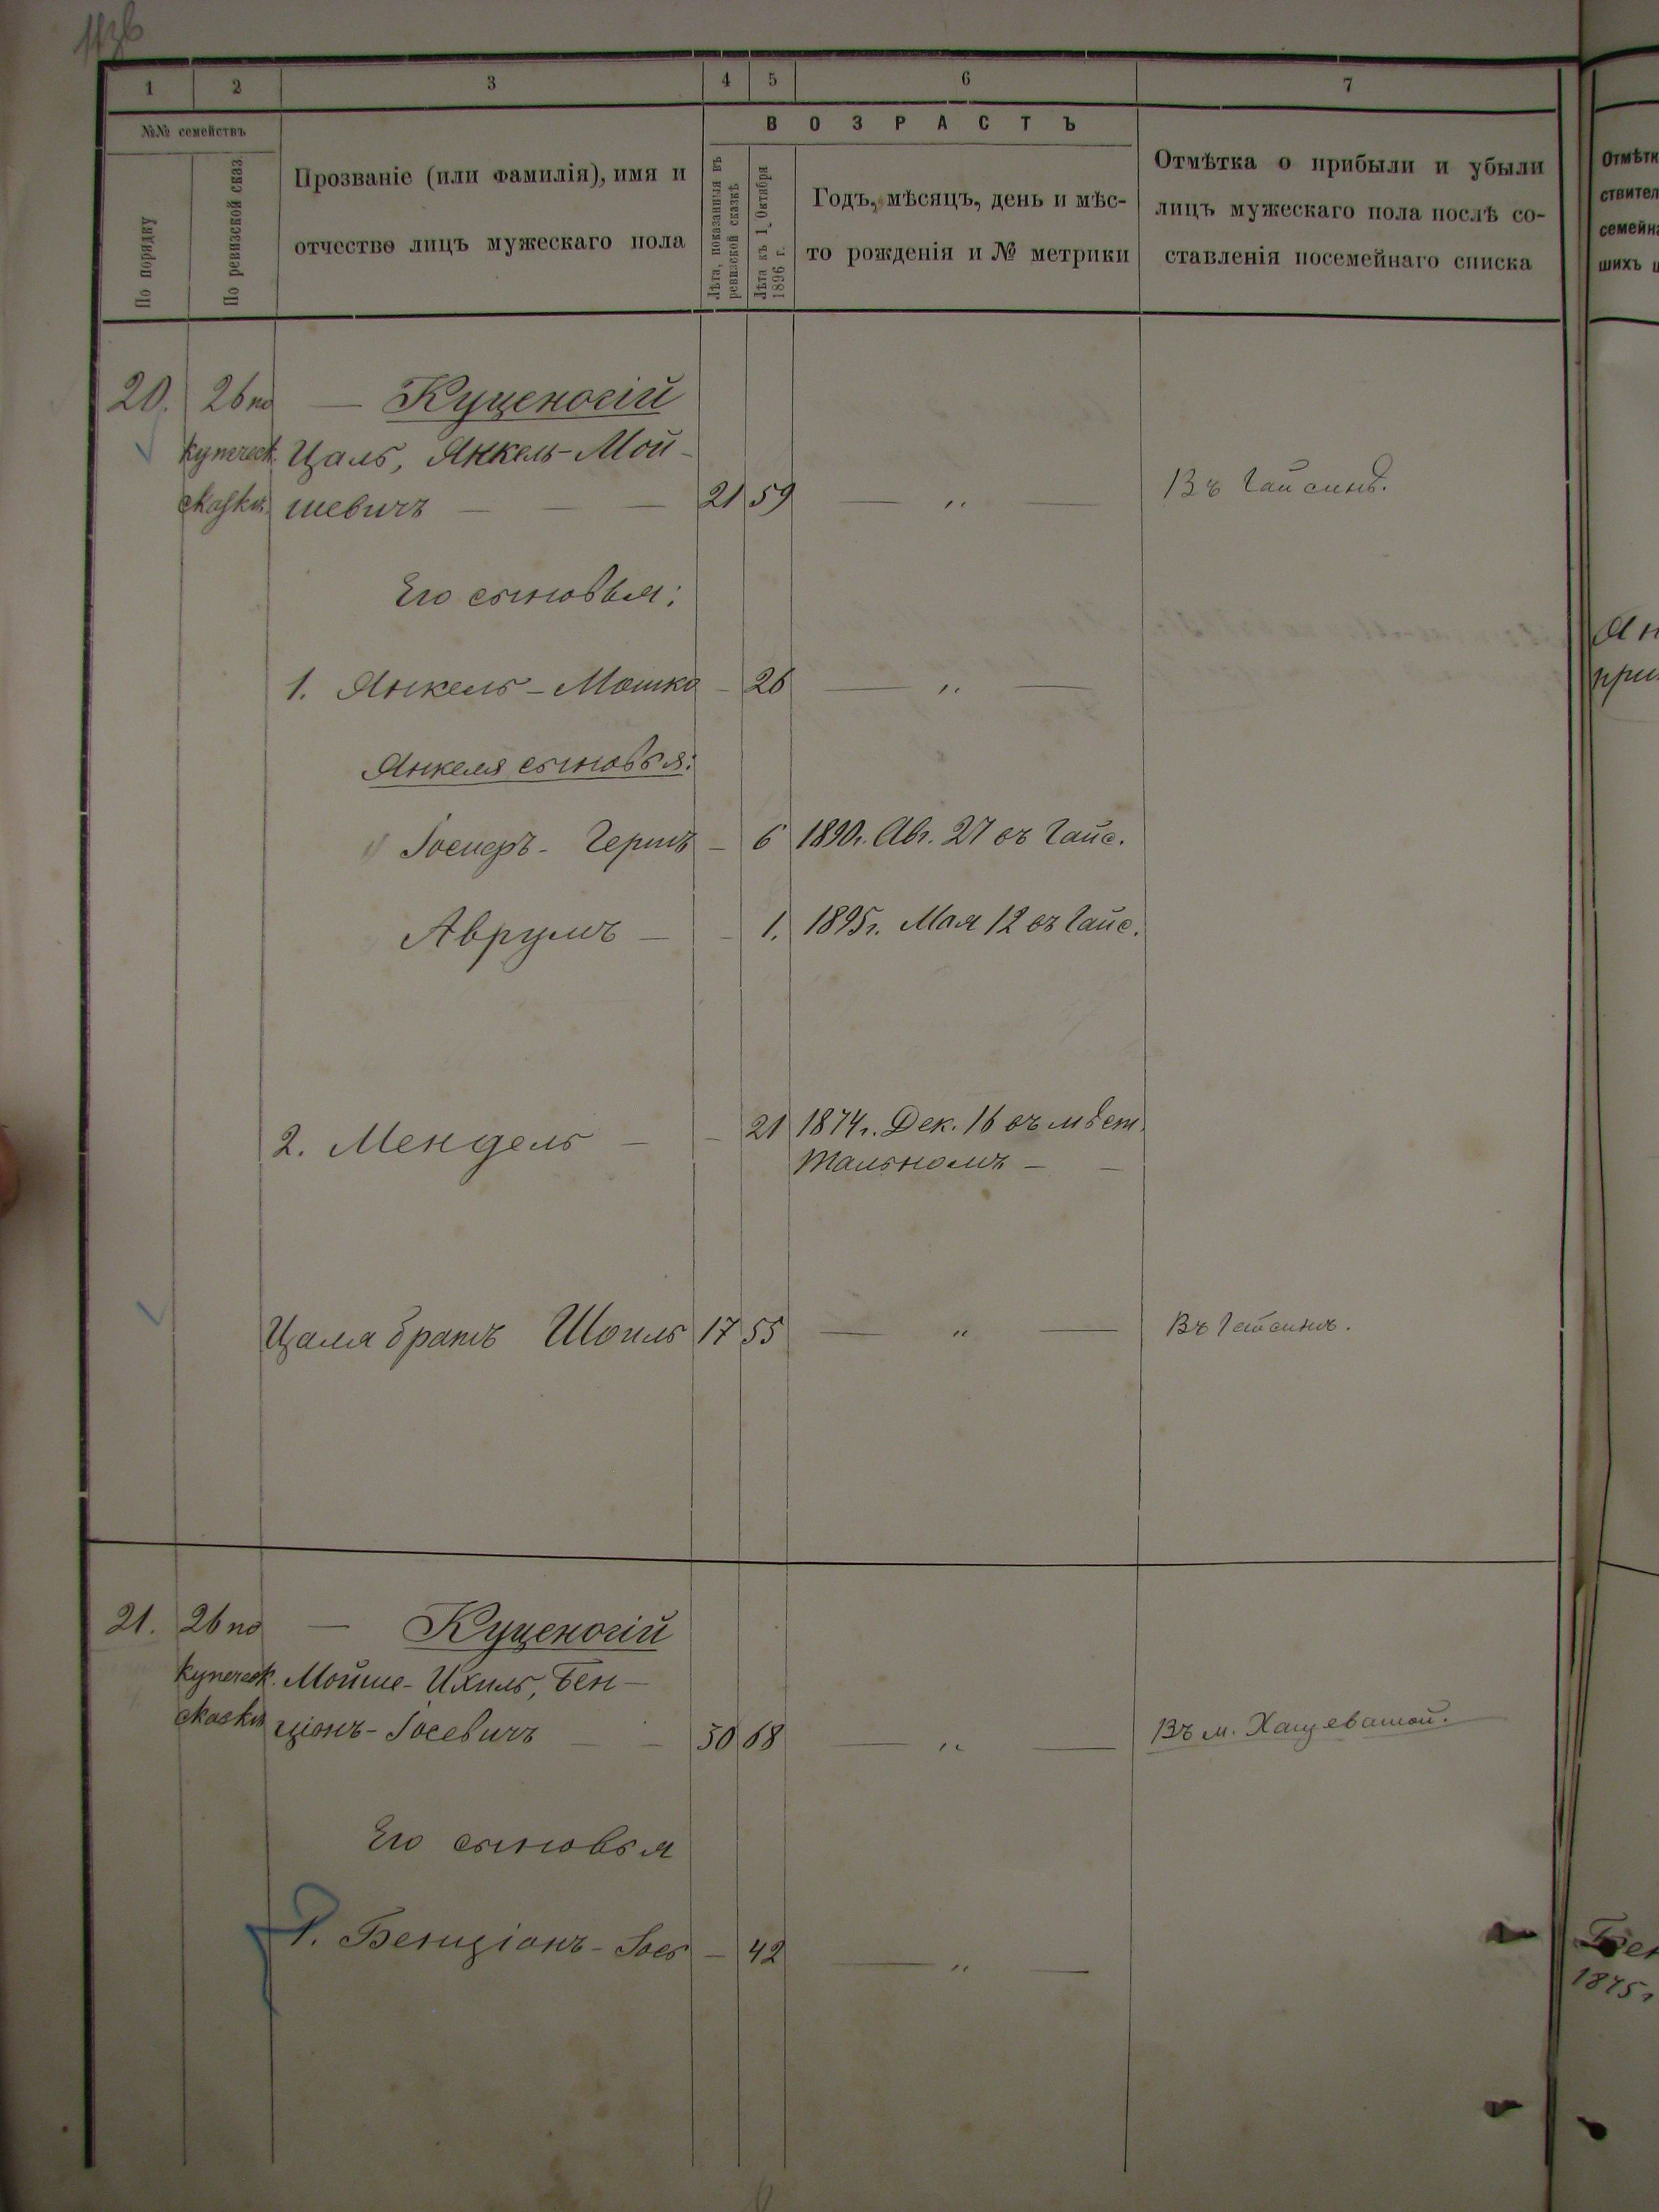 1136
1 2 3 4 5 6 7
№№ семействъ
В О З Р А С Т Ъ
По порядку
По ревизской сказ.
Прозваніе (или фамилія), имя и
отчество лицъ мужескаго пола
Лѣта, показанныя въ
ревизской сказкѣ
Лѣта къ 1 Октября
1896 г.
Годъ, мѣсяцъ, день и мѣс-
то рожденія и № метрики
Отмѣтка о прибыли и убыли
лицъ мужескаго пола послѣ со-
ставленія посемейнаго списка
20. 26 по — Куценогій
купеческ. Цаль, Янкель-Мой-
сказкѣ шевичъ — — — 21 59 — „ — Въ Гайсинѣ.
Его сыновья:
1. Янкель-Мошко — 26 — „ —
Янкеля сыновья:
Іосифъ-Гершъ — 6 1890г. Авг. 27 въ Гайс.
Аврумъ — — 1. 1895г. Мая 12 въ Гайс.
2. Мендель — — 21 1874г. Дек. 16 въ мѣст.
Тальномъ — —
Цаля братъ Шоиль 17 55 — „ — Въ Гайсинѣ.
21. 26 по — Куценогій
купеческ. Мойше-Ихиль, Бен-
сказкѣ ціонъ-Іосевичъ — — 30 68 — „ — Въ м. Хащеватой.
Его сыновья
1. Бенціонъ-Іось — 42 — „ —
Отмѣтк
ствител
семейн
шихъ
Ян
при
Бен
1875г